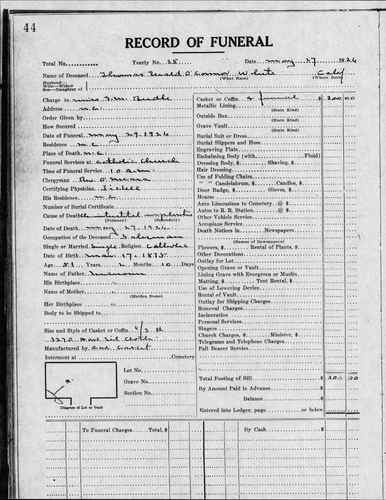 44
RECORD OF FUNERAL
Total No. Yearly No. 25 Date May 27 1926
Name of Deceased Thomas O'Connor White Calif
(What Race) (Where Born)
Husband
Wife Widow of
Son Daughter
Charge to Miss Casket or Coffin & funeral $ 200.00
Address M.C. Metallic Lining
(State Kind)
Order Given by Outside Box
(State Kind)
How Secured Grave Vault
(State Kind)
Date of Funeral May 29, 1926 Burial Suit or Dress
Residence M.C. Burial Slippers and Hose
Engraving Plate
Place of Death M.C. Embalming Body (with Fluid)
Funeral Services at Catholic Church Dressing Body, $ Shaving, $
Hair Dressing
Time of Funeral Service 10 a.m. Use of Folding Chairs
Clergyman Rev. O'Meara " " Candelabrum, $ Candles, $
Certifying Physician Sickel Door Badge, $ Gloves, $
Hearse
His Residence M.C. Auto Limousines to Cemetery @ $
Number of Burial Certificate Autos to R. R. Station @ $
Cause of Death
(Primary) (Secondary)
Other Vehicle Service
Aeroplane Service
Date of Death May 27, 1926 Death Notices in Newspapers
(Names of Newspapers)
Occupation of the Deceased Salesman
Single or Married Single Religion Catholic Flowers, $ Rental of Plants, $
Date of Birth Mar 17 1875 Other Decorations
Outlay for Lot
Age 51 Years 2 Months 10 Days Opening Grave or Vault
Name of Father Unknown Lining Grave with Evergreen or Muslin
Matting, $ Tent Rental, $
His Birthplace " Use of Lowering Device
Name of Mother " Rental of Vault
(Maiden Name)
Outlay for Shipping Charges
Her Birthplace " Removal Charges
Incineration
Body to be Shipped to Personal Services
Singers
Size and Style of Casket or Coffin 6/3 Church Charges, $ Minister, $
3270 Cloth Telegrams and Telephone Charges
Manufactured by Casket Pall Bearer Service
Interment at Cemetery
Lot No. Total Footing of Bill $ 200 00
Grave No. By Amount Paid in Advance $
Section No. Balance $
Diagram of Lot or Vault Entered into Ledger, page or below
To Funeral Charges Total, $ By Cash $